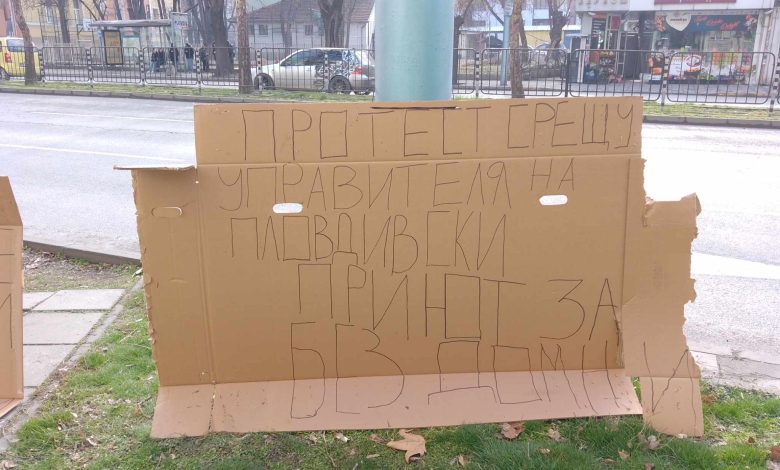 ПРОТЕСТ СРЕЩУ
УПРАВИТЕЛЯ НА
ПЛОВДИВСКИ
ПРИЮТ ЗА
БЕЗ ДОМНИ